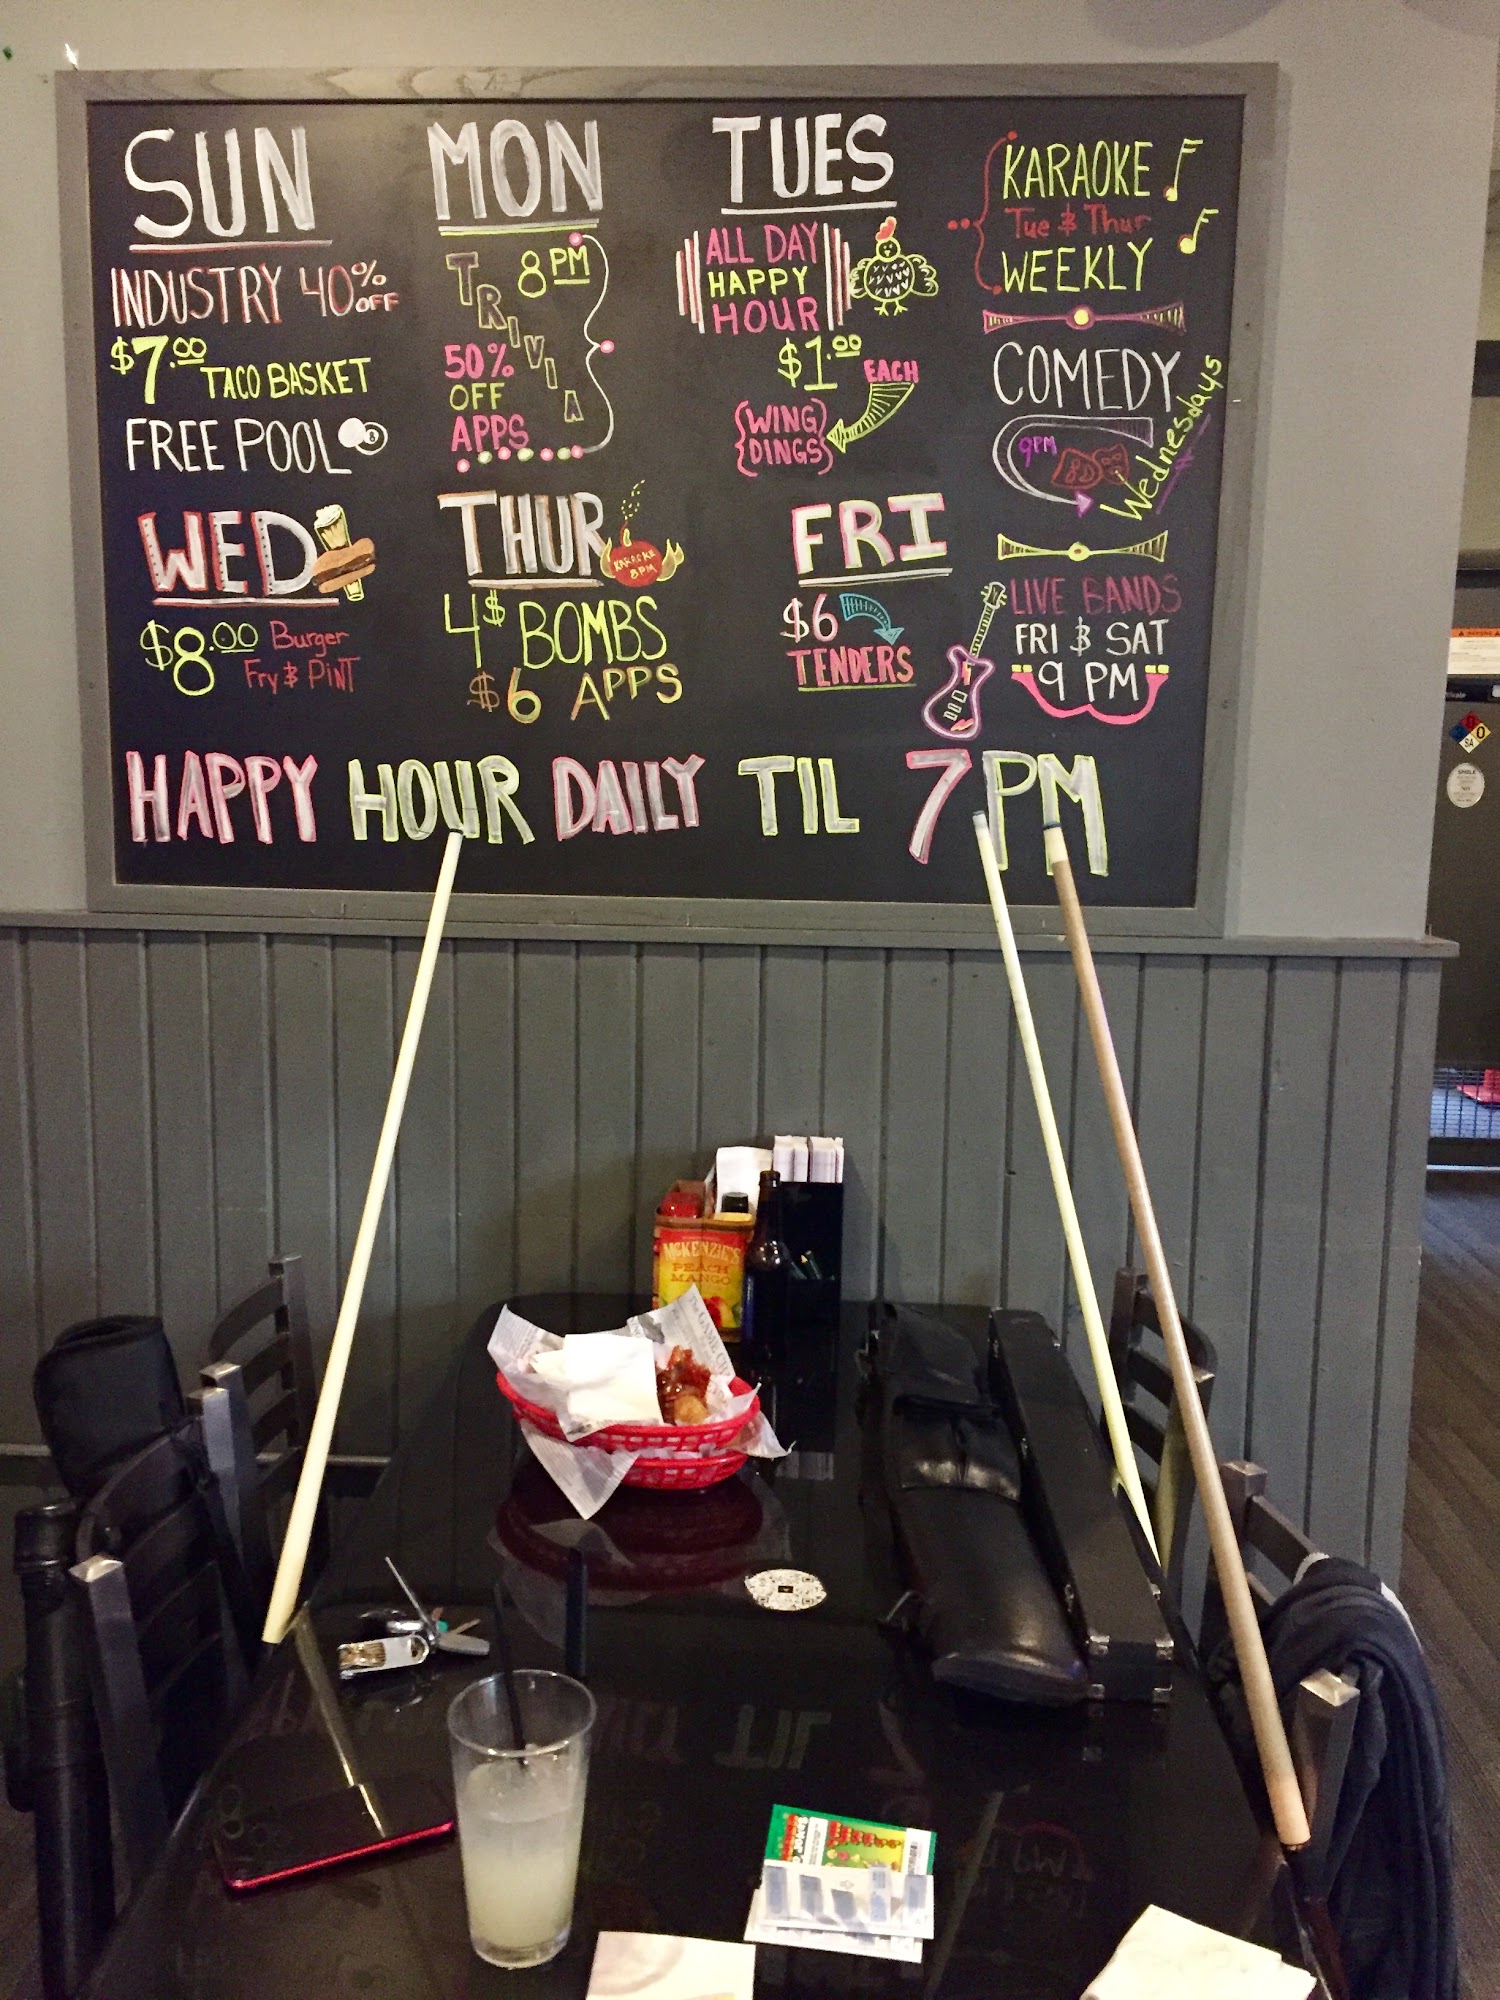 SUN
INDUSTRY 40% OFF
$7.00 TACO BASKET
FREE POOL
8
MON
TRIVIA 8 PM
50%
OFF
APPS
TUES
ALL DAY
HAPPY
HOUR
$1.00 EACH
{WING
DINGS}
KARAOKE
Tue & Thur
WEEKLY
COMEDY
9PM
Wednesdays
WED
$8.00 Burger
Fry & PiNT
THUR
KARAOKE
8PM
4$ BOMBS
$6 APPS
FRI
$6
TENDERS
LIVE BANDS
FRI & SAT
9 PM
HAPPY HOUR DAILY TIL 7PM
McKENZIE'S
PEACH
MANGO